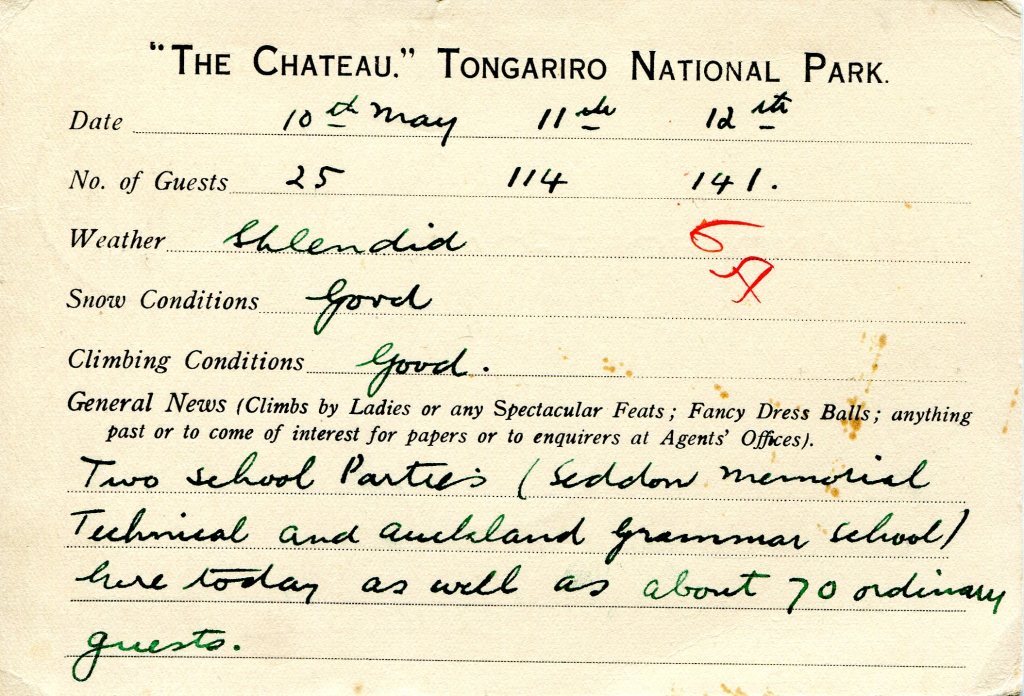 "THE CHATEAU." TONGARIRO NATIONAL PARK.
Date 10th May 11th 12th
No. of Guests 25 114 141.
Weather Splendid
Snow Conditions Good
Climbing Conditions Good.
General News (Climbs by Ladies or any Spectacular Feats; Fancy Dress Balls; anything
past or to come of interest for papers or to enquirers at Agents' Offices).
Two School Parties (Seddon Memorial
Technical and Auckland Grammar School)
here today as well as about 70 ordinary
guests.